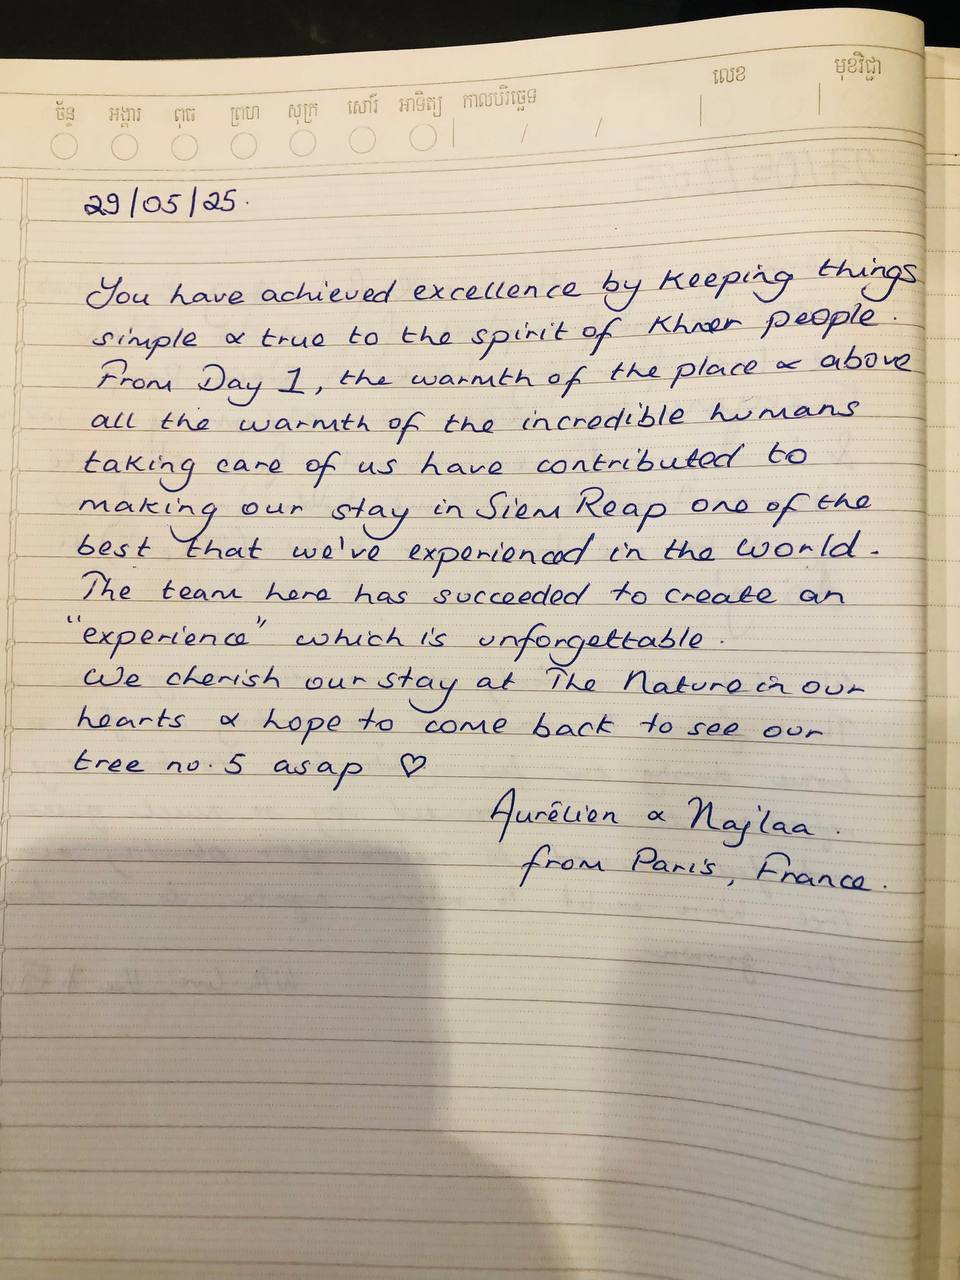 ច័ន្ទ អង្គារ ពុធ ព្រហ សុក្រ សៅរ៍ អាទិត្យ កាលបរិច្ឆេទ / / លេខ មុខវិជ្ជា
29/05/25.
You have achieved excellence by keeping things
simple & true to the spirit of Khmer people.
From Day 1, the warmth of the place & above
all the warmth of the incredible humans
taking care of us have contributed to
making our stay in Siem Reap one of the
best that we've experienced in the world.
The team here has succeeded to create an
"experience" which is unforgettable.
We cherish our stay at The Nature in our
hearts & hope to come back to see our
tree no. 5 asap ♡
Aurélien & Najlaa.
from Paris, France.